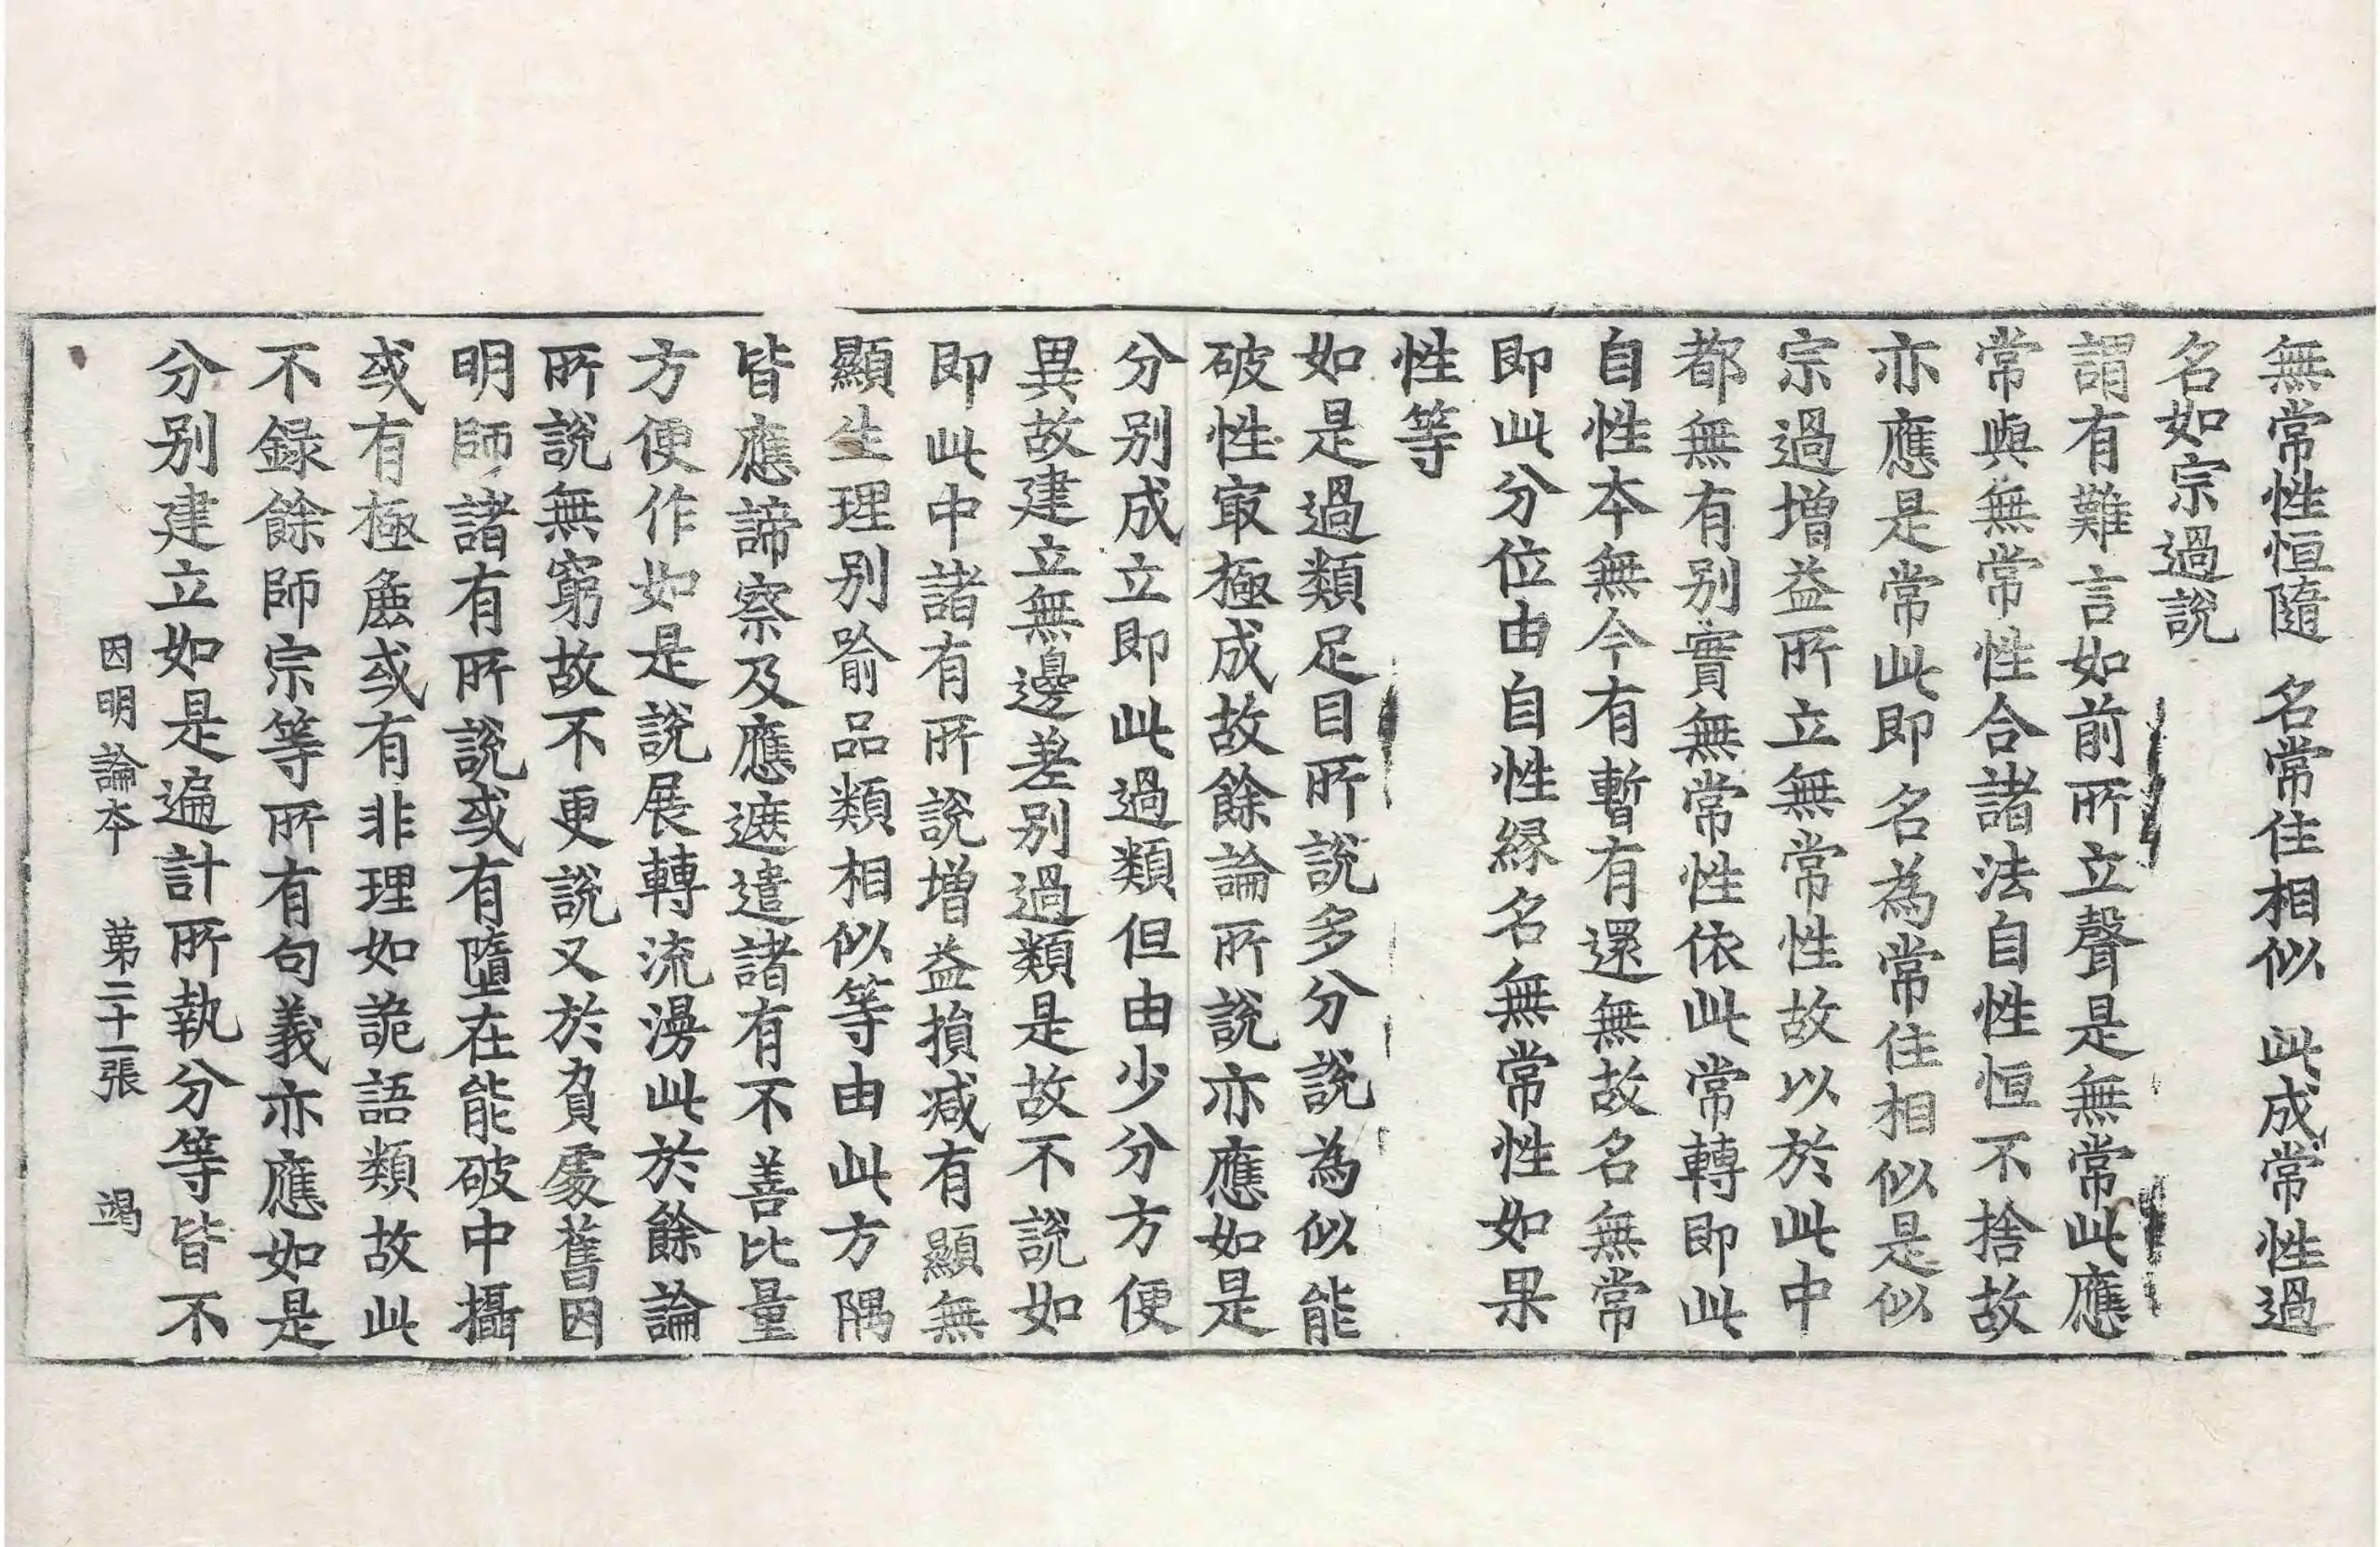 無常性恒隨　名常住相似　此成常性過
名如宗過說
謂有難言如前所立聲是無常此應
常與無常性合諸法自性恒不捨故
亦應是常此即名為常住相似是似
宗過增益所立無常性故以於此中
都無有別實無常性依此常轉即此
自性本無今有暫有還無故名無常
即此分位由自性緣名無常性如果
性等
如是過類足目所說多分說為似能
破性㝡極成故餘論所說亦應如是
分別成立即此過類但由少分方便
異故建立無邊差別過類是故不說如
即此中諸有所說增益損減有顯無
顯生理別喻品類相似等由此方隅
皆應諦察及應遮遣諸有不善比量
方便作如是說展轉流漫此於餘論
所說無窮故不更說又於負處舊因
明師諸有所說或有墮在能破中攝
或有極麁或有非理如詭語類故此
不錄餘師宗等所有句義亦應如是
分別建立如是遍計所執分等皆不
因明論本　第二十一張　竭